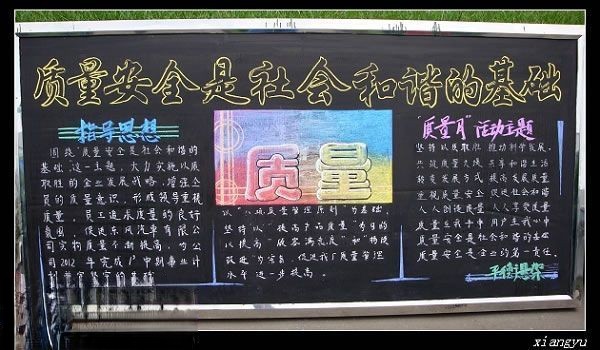 质量安全是社会和谐的基础
指导思想
围绕"质量安全是社会和谐的
基础"这一主题，大力实施以质
取胜的企业发展战略，增强全
员的质量意识，形成领导重视
质量、员工追求质量的良好
氛围，促进东风汽车有限公
司实物质量不断提高，为公
司2012年完成
质量
以"八项质量管理原则"为基础，
坚持以"提高产品质量"为目的
以"提高顾客满意度"和"持续
改进"为宗旨，促进我厂质量管理
水平进一步提高。
"质量月"活动主题
坚持以质取胜 推动科学发展
共筑质量大堤 共享和谐生活
转变发展方式 提高发展质量
重视质量安全 促进社会和谐
人人创造质量 人人享受质量
质量在我手中 用户在我心中
质量安全是社会和谐的基础
质量安全是企业的第一责任
xiangyu